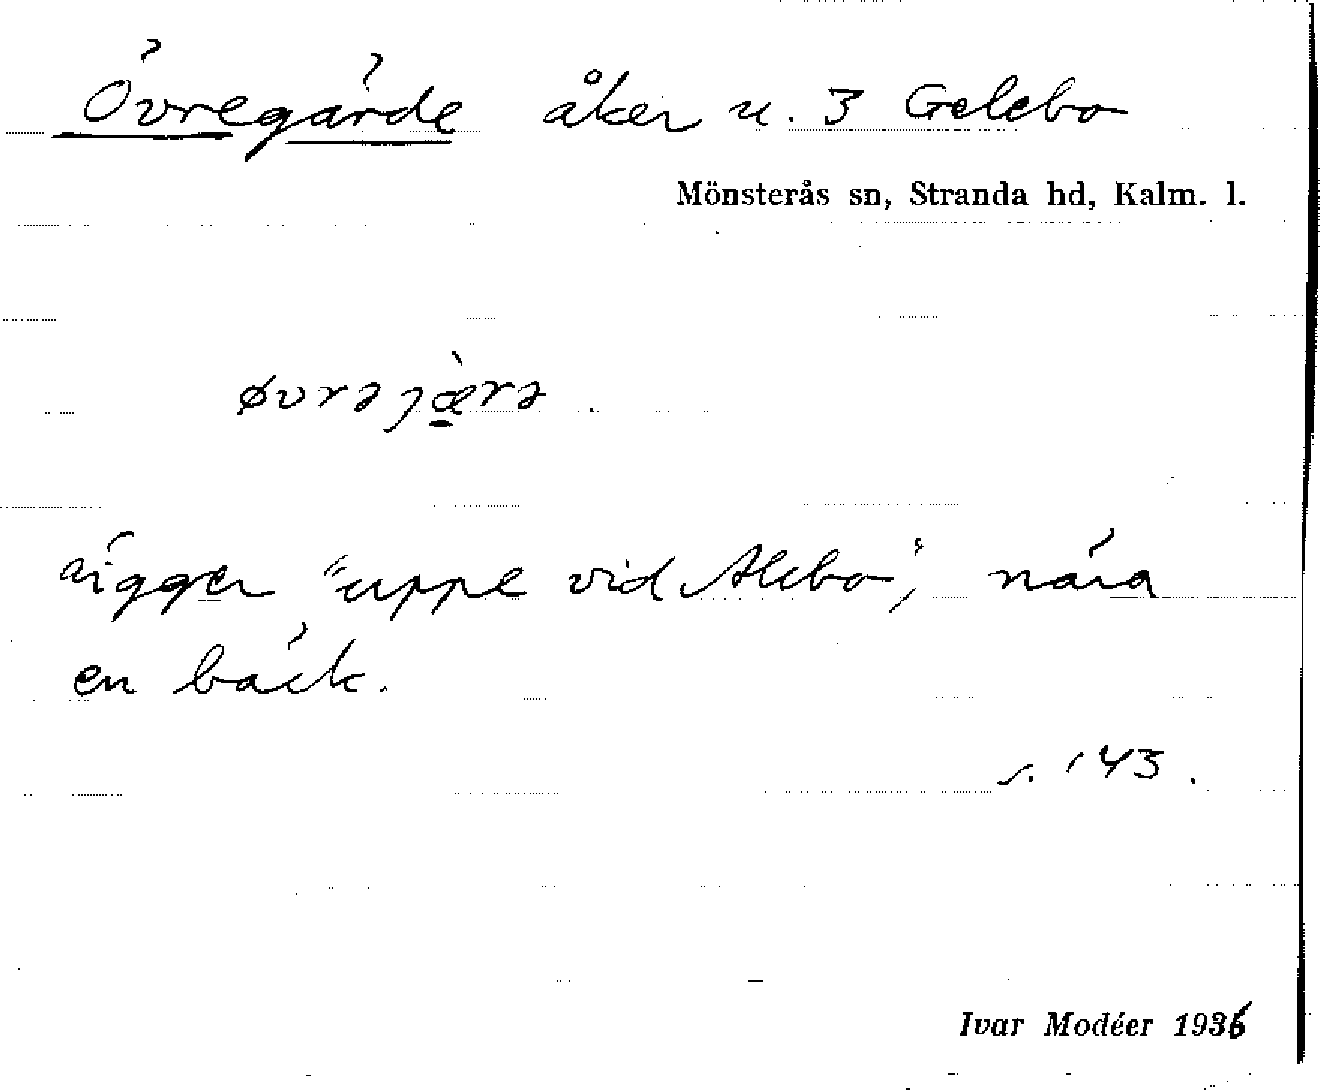 Övregärde åker u. 3 Gelebo
Mönsterås sn, Stranda hd, Kalm. l.
øvrəjæ̀rə
Ligger "uppe vid Alebo", nära
en bäck.
s. 143.
Ivar Modéer 1936